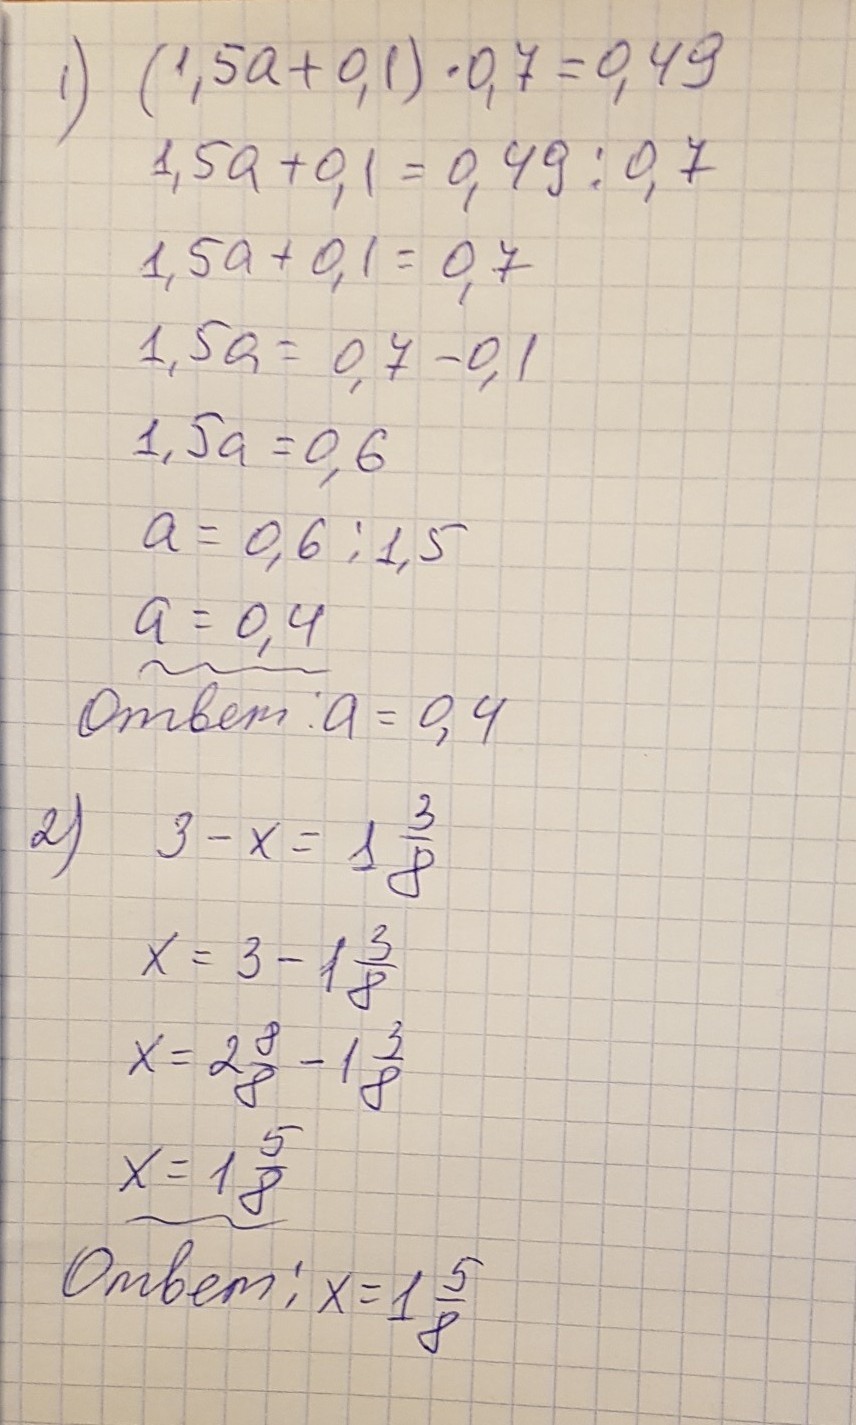 1) (1,5a+0,1)·0,7=0,49
1,5a+0,1=0,49:0,7
1,5a+0,1=0,7
1,5a=0,7-0,1
1,5a=0,6
a=0,6:1,5
a=0,4
Ответ: a=0,4
2) 3-x=1 3/8
x=3-1 3/8
x=2 8/8-1 3/8
x=1 5/8
Ответ: x=1 5/8